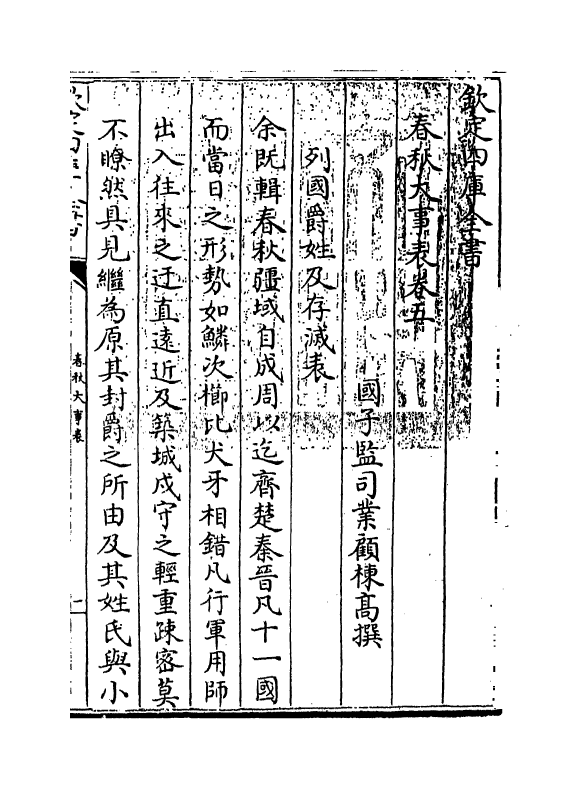 欽定四庫全書
春秋大事表卷五
國子監司業顧棟高撰
列國爵姓及存滅表
余既輯春秋疆域自成周以迄齊楚秦晉凡十一國
而當日之形勢如鱗次櫛比犬牙相錯凡行軍用師
出入往來之迂直遠近及築城戍守之輕重疎密莫
不瞭然具見繼為原其封爵之所由及其姓氏與小
春秋大事表
一